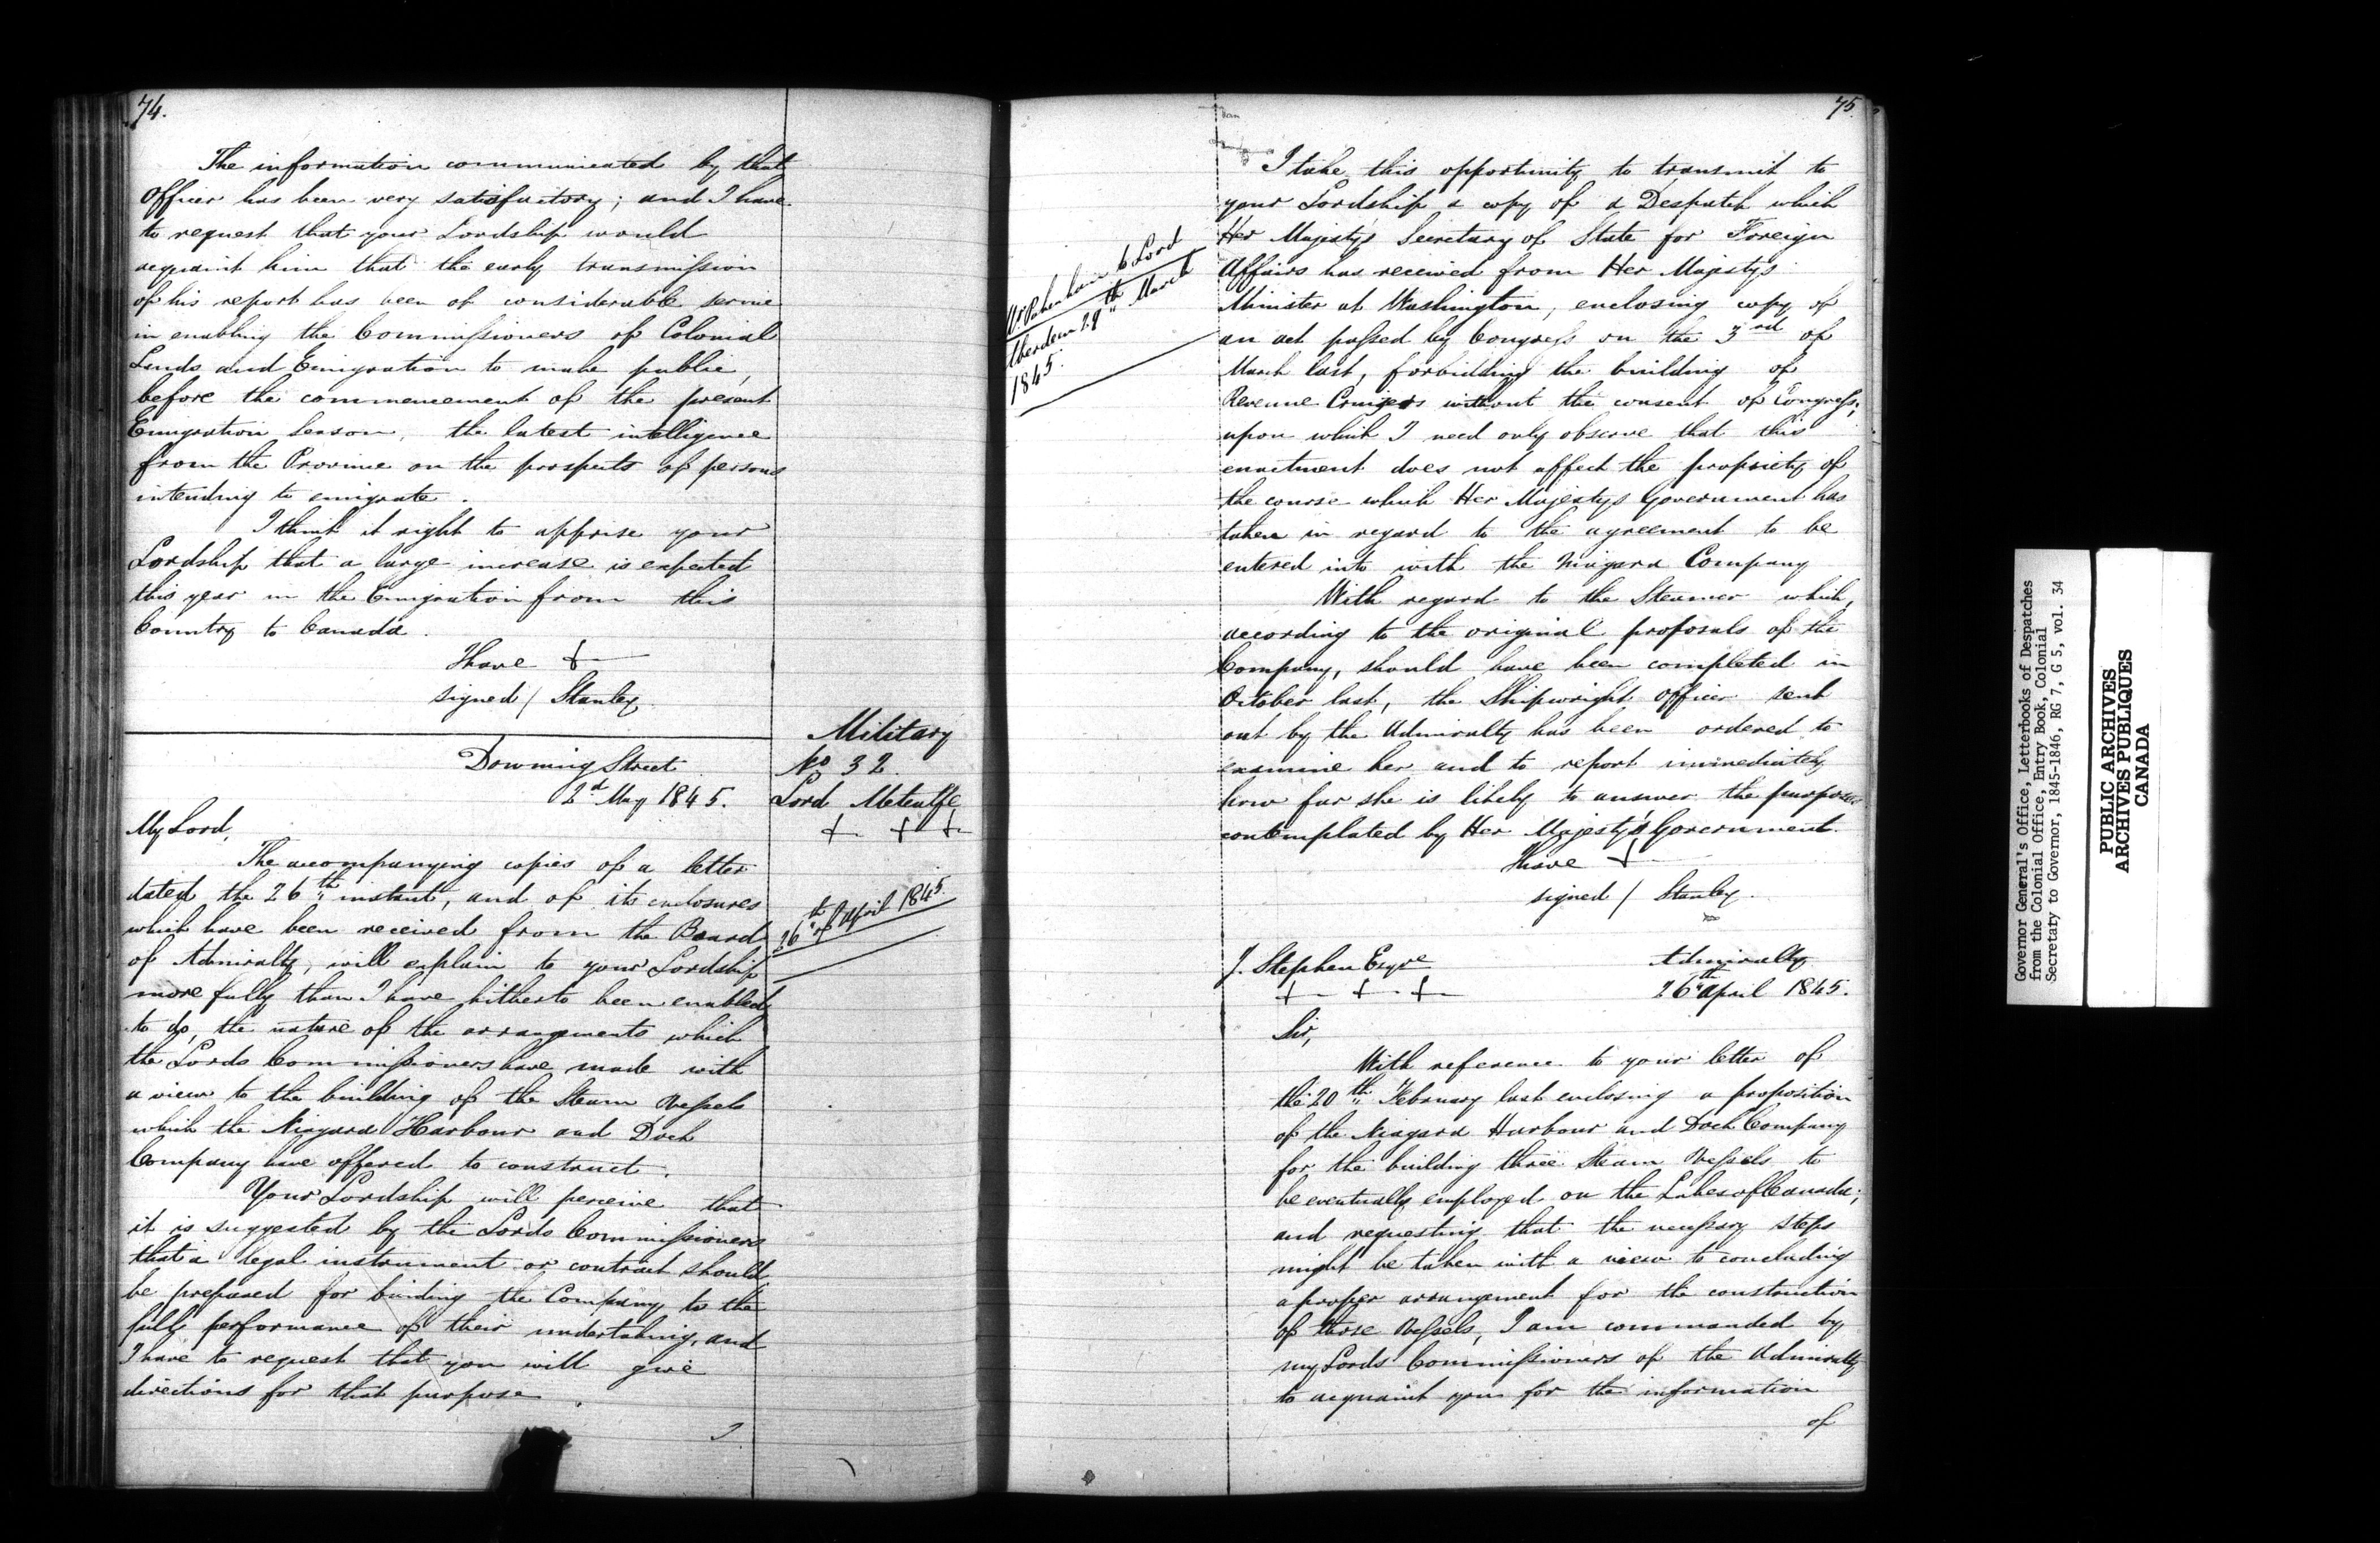 74.
The information communicated by that
Officer has been very satisfactory; and I have
to request that your Lordship would
acquaint him that the early transmission
of his report has been of considerable service
in enabling the Commissioners of Colonial
Lands and Emigration to make public,
before the commencement of the present
Emigration Season, the latest intelligence
from the Province on the prospects of persons
intending to emigrate.
I think it right to apprise your
Lordship that a large increase is expected
this year in the Emigration from this
Country to Canada.
I have &—
signed / Stanley.
Downing Street
2d May 1845.
Military
No 32.
Lord Metcalfe
&— &— &—
My Lord,
The accompanying copies of a letter
dated the 26th instant, and of its enclosures
which have been received from the Board
of Admiralty, will explain to your Lordship
more fully than I have hitherto been enabled
to do, the nature of the arrangements which
the Lords Commissioners have made with
a view to the building of the Steam Vessels
which the Niagara Harbour and Dock
Company have offered to construct.
26th of April 1845.
Your Lordship will perceive that
it is suggested by the Lords Commissioners
that a legal instrument or contract should
be prepared for binding the Company to the
full performance of their undertaking, and
I have to request that you will give
directions for that purpose.
I
75.
I take this opportunity to transmit to
your Lordship a copy of a Despatch which
Her Majesty's Secretary of State for Foreign
Affairs has received from Her Majesty's
Minister at Washington, enclosing copy of
an act passed by Congress on the 3rd of
March last, forbidding the building of
Revenue Cruisers without the consent of Congress;
upon which I need only observe that this
enactment does not affect the propriety of
the course which Her Majesty's Government has
taken in regard to the agreement to be
entered into with the Niagara Company
Mr Pakenham to Lord
Aberdeen 29th March
1845.
With regard to the Steamer which,
according to the original proposals of the
Company, should have been completed in
October last, the Shipwright Officer sent
out by the Admiralty has been ordered to
examine her and to report immediately
how far she is likely to answer the purposes
contemplated by Her Majesty's Government.
I have &—
signed / Stanley.
J. Stephen Esqre
&— &— &—
Admiralty
26th April 1845.
Sir,
With reference to your letter of
the 20th February last enclosing a proposition
of the Niagara Harbour and Dock Company
for the building three Steam Vessels to
be eventually employed on the Lakes of Canada;
and requesting that the necessary steps
might be taken with a view to concluding
a proper arrangement for the construction
of those Vessels, I am commanded by
my Lords Commissioners of the Admiralty
to acquaint you for the information
of
Governor General's Office, Letterbooks of Despatches
from the Colonial Office, Entry Book, Colonial
Secretary to Governor, 1845-1846, RG 7, G 5, vol. 34
PUBLIC ARCHIVES
ARCHIVES PUBLIQUES
CANADA